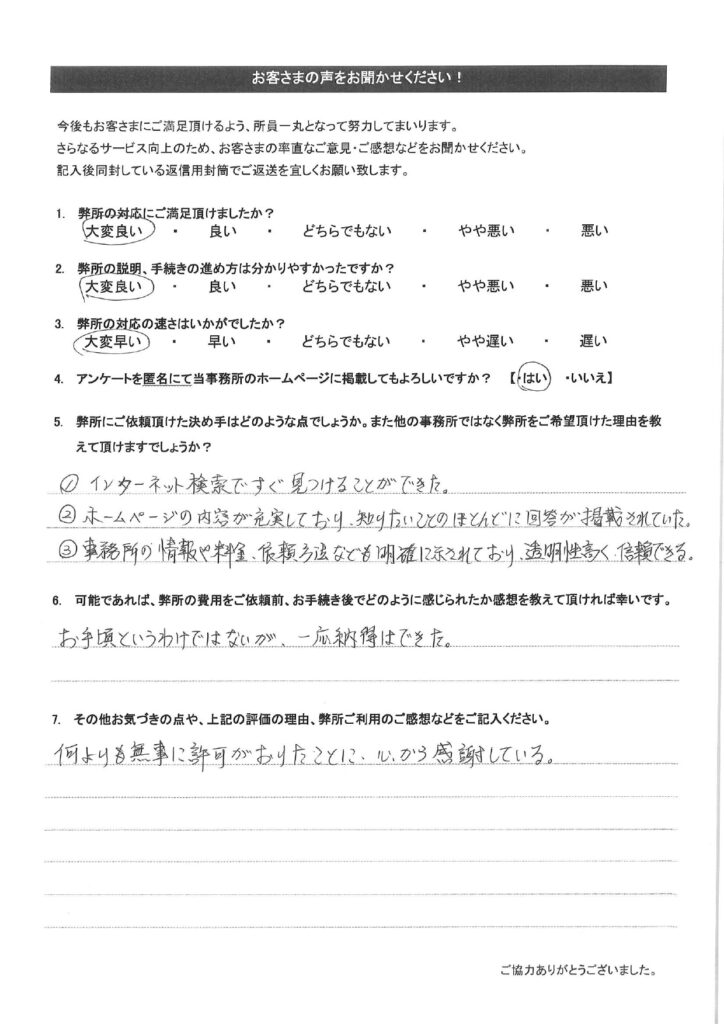 お客さまの声をお聞かせください！
今後もお客さまにご満足頂けるよう、所員一丸となって努力してまいります。
さらなるサービス向上のため、お客さまの率直なご意見・ご感想などをお聞かせください。
記入後同封している返信用封筒でご返送を宜しくお願い致します。
1. 弊所の対応にご満足頂けましたか？
大変良い ・ 良い ・ どちらでもない ・ やや悪い ・ 悪い
2. 弊所の説明、手続きの進め方は分かりやすかったですか？
大変良い ・ 良い ・ どちらでもない ・ やや悪い ・ 悪い
3. 弊所の対応の速さはいかがでしたか？
大変早い ・ 早い ・ どちらでもない ・ やや遅い ・ 遅い
4. アンケートを匿名にて当事務所のホームページに掲載してもよろしいですか？ 【・はい ・いいえ】
5. 弊所にご依頼頂けた決め手はどのような点でしょうか。また他の事務所ではなく弊所をご希望頂けた理由を教
えて頂けますでしょうか？
① インターネット検索ですぐ見つけることができた。
② ホームページの内容が充実しており、知りたいことのほとんどに回答が掲載されていた。
③ 事務所の情報や料金、依頼方法なども明確に示されており、透明性高く、信頼できる。
6. 可能であれば、弊所の費用をご依頼前、お手続き後でどのように感じられたか感想を教えて頂ければ幸いです。
お手頃というわけではないが、一応納得はできた。
7. その他お気づきの点や、上記の評価の理由、弊所ご利用のご感想などをご記入ください。
何よりも無事に許可がおりたことに、心から感謝している。
ご協力ありがとうございました。